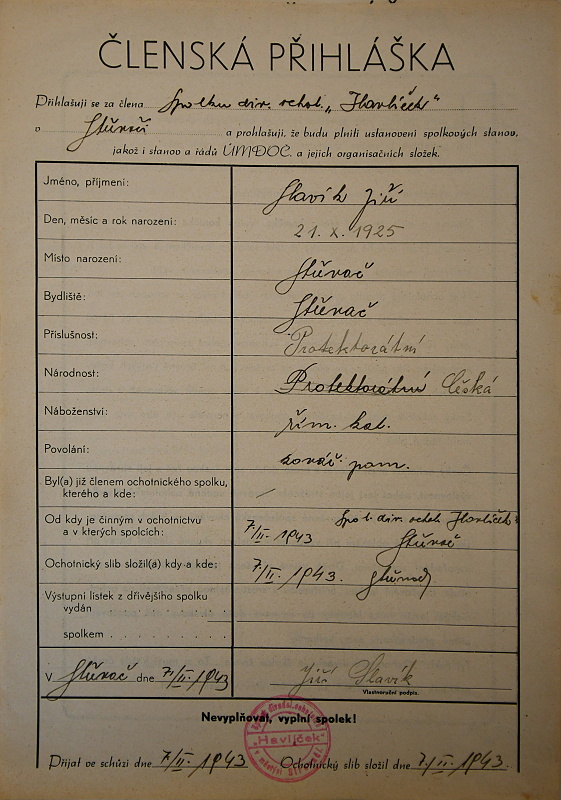 ČLENSKÁ PŘIHLÁŠKA
Přihlašuji se za člena Spolku div. ochot. „Havlíček"
v a prohlašuji, že budu plniti ustanovení spolkových stanov,
jakož i stanov a řádů ÚMDOČ. a jejich organisačních složek.
Jméno, příjmení: Slavík Jiří
Den, měsíc a rok narození: 21. X. 1925
Místo narození:
Bydliště:
Příslušnost: Protektorátní
Národnost: Protektorátní Česká
Náboženství: řím. kat.
Povolání: pom.
Byl(a) již členem ochotnického spolku,
kterého a kde: /
Od kdy je činným v ochotnictvu
a v kterých spolcích: 7/II. 1943 Spol. div. ochot. Havlíček
Ochotnický slib složil(a) kdy a kde: 7/II. 1943.
Výstupní lístek z dřívějšího spolku
vydán . . . . . . . . . . . .
spolkem . . . . . . . . . . .
V dne 7/II. 1943 Jiří Slavík
Vlastnoruční podpis.
Nevyplňovat, vyplní spolek!
„Havlíček"
Přijat ve schůzi dne 7/II. 1943 Ochotnický slib složil dne 7/II. 1943.